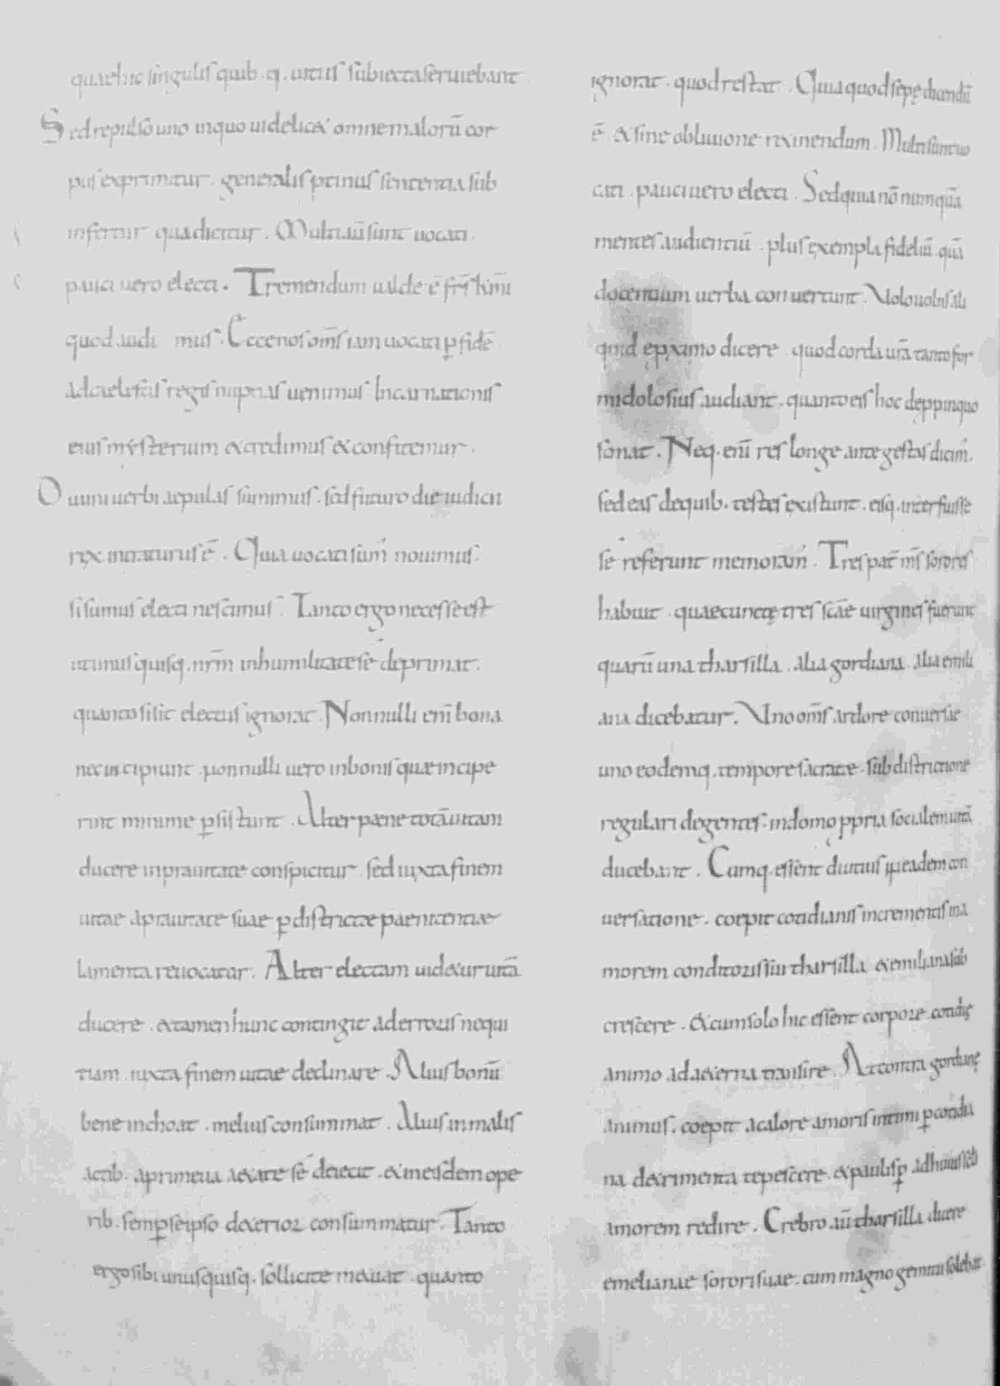 quae hic singulis quib. q. uitiis subiecta seruiebant
Sed repulso uno inquo uidelicet omne malorū cor
pus exprimitur. generalis ptinus sententia sub
infertur qua dicitur. Multi aū sunt uocati.
pauci uero electi. Tremendum ualde ē frs̄ kmi
quod audi mus. Ecce nos om̄s iam uocati p fidē
ad caelestis regis nuptias uenimus. Incarnationis
eius mysterium & credimus & confitemur.
Diuini uerbi aepulas sumimus. sed futuro die iudicii
rex intraturus ē. Quia uocati sum' nouimus.
si sumus electi nescimus. Tanto ergo necesse est
ut unus quisq. nrm̄ in humilitate sē deprimat.
quanto si sit electus ignorat. Nonnulli eni bona
nec incipiunt. nonnulli uero in bonis quae incipe
rint minime psistunt. Alter paene totā uitam
ducere in prauitate conspicitur. sed iuxta finem
uitae a prauitate suae p districtae paenitentiae
lamenta reuocatur. Alter electam uidetur uitā
ducere. & tamen hunc contingit ad erroris nequi
tiam. iuxta finem uitae declinare. Alius bonū
bene inchoat. melius consummat. Alius in malis
actib. a primeua aetate sē deiecit. & in eisdem ope
rib. semp seipso deterior consummatur. Tanto
ergo sibi unusquisq. sollicite metuat. quanto
ignorat. quod restat. Quia quod sepę dicendū
ē. & sine obliuione retinendum. Multi sunt uo
cati. pauci uero electi. Sed quia nō numquā
mentes audientiū. plus exempla fideliū quā
docentium uerba conuertunt. Volo uobis ali
quid ę pximo dicere. quod corda urā tanto for
midolosius audiant. quanto eis hoc de ppinquo
sonat. Neq. eni res longe ante gestas dicim'.
sed eas de quib. testes existunt. eisq. interfuisse
sē referunt memoram'. Tres pat̄ m̄s sorores
habuit. quae cunctę tres scāe uirgines fuerunt
quarū una tharsilla. alia gordiana. alia emili
ana dicebatur. Uno om̄s ardore conuersae
uno eodemq. tempore sacratae. sub districtione
regulari degentes. in domo ppria socialem uitā
ducebant. Cumq. essent diutius in eadem con
uersatione. coepit cotidianis incrementis in a
morem conditoris sui tharsilla & emiliana sub
crescere. & cum solo hic essent corpore. cotidię
animo ad aeterna transire. At contra gordianę
animus. coepit a calore amoris intimi p cotidia
na detrimenta tepescere. & paulisp ad huius scli
amorem redire. Crebro aū tharsilla dicere
emelianae sorori suae. cum magno gemitu solebat